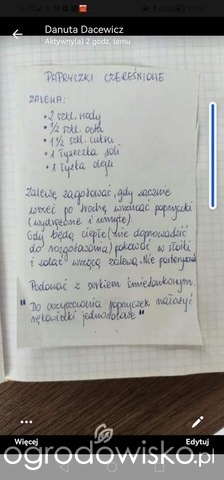 Danuta Dacewicz
Aktywny(a) 2 godz. temu
PAPRYCZKI CZEREŚNIOWE
ZALEWA:
• 2 szkl. wody
• 1/2 szkl. octu
• 1 1/2 szkl. cukru
• 1 łyżeczka soli
• 1 łyżka oleju
Zalewę zagotować, gdy zacznie
wrzeć po trochę wrzucać papryczki
(wydrążone i umyte).
Gdy będą ciepłe (nie doprowadzić
do rozgotowania) pakować w słoiki
i zalać wrzącą zalewą. Nie pasteryzować
Podawać z serkiem śmietankowym.
"Do oczyszczania papryczek nałożyć
rękawiczki jednorazowe"
Więcej
Edytuj
ogrodowisko.pl